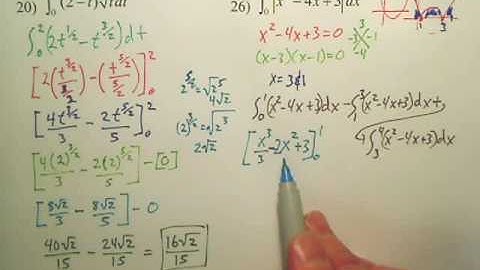 20) ∫₀² (2-t)√t dt
∫₀² (2t^(1/2) - t^(3/2)) dt
[2(t^(3/2)/(3/2)) - (t^(5/2)/(5/2))]₀²
[4t^(3/2)/3 - 2t^(5/2)/5]₀²
[4(2)^(3/2)/3 - 2(2)^(5/2)/5] - [0]
[8√2/3 - 8√2/5] - 0
40√2/15 - 24√2/15 = 16√2/15
2^(5/2) = √2⁵
4√2
(2)^(3/2) = √2³
2√2
26) ∫₀ |x² - 4x + 3| dx
x² - 4x + 3 = 0
(x-3)(x-1) = 0
x = 3 & 1
3
-3 -1
-4
1 3
∫₀¹ (x² - 4x + 3) dx - ∫₁³ (x² - 4x + 3) dx +
∫₃⁴ (x² - 4x + 3) dx
[x³/3 - 2x² + 3]₀¹